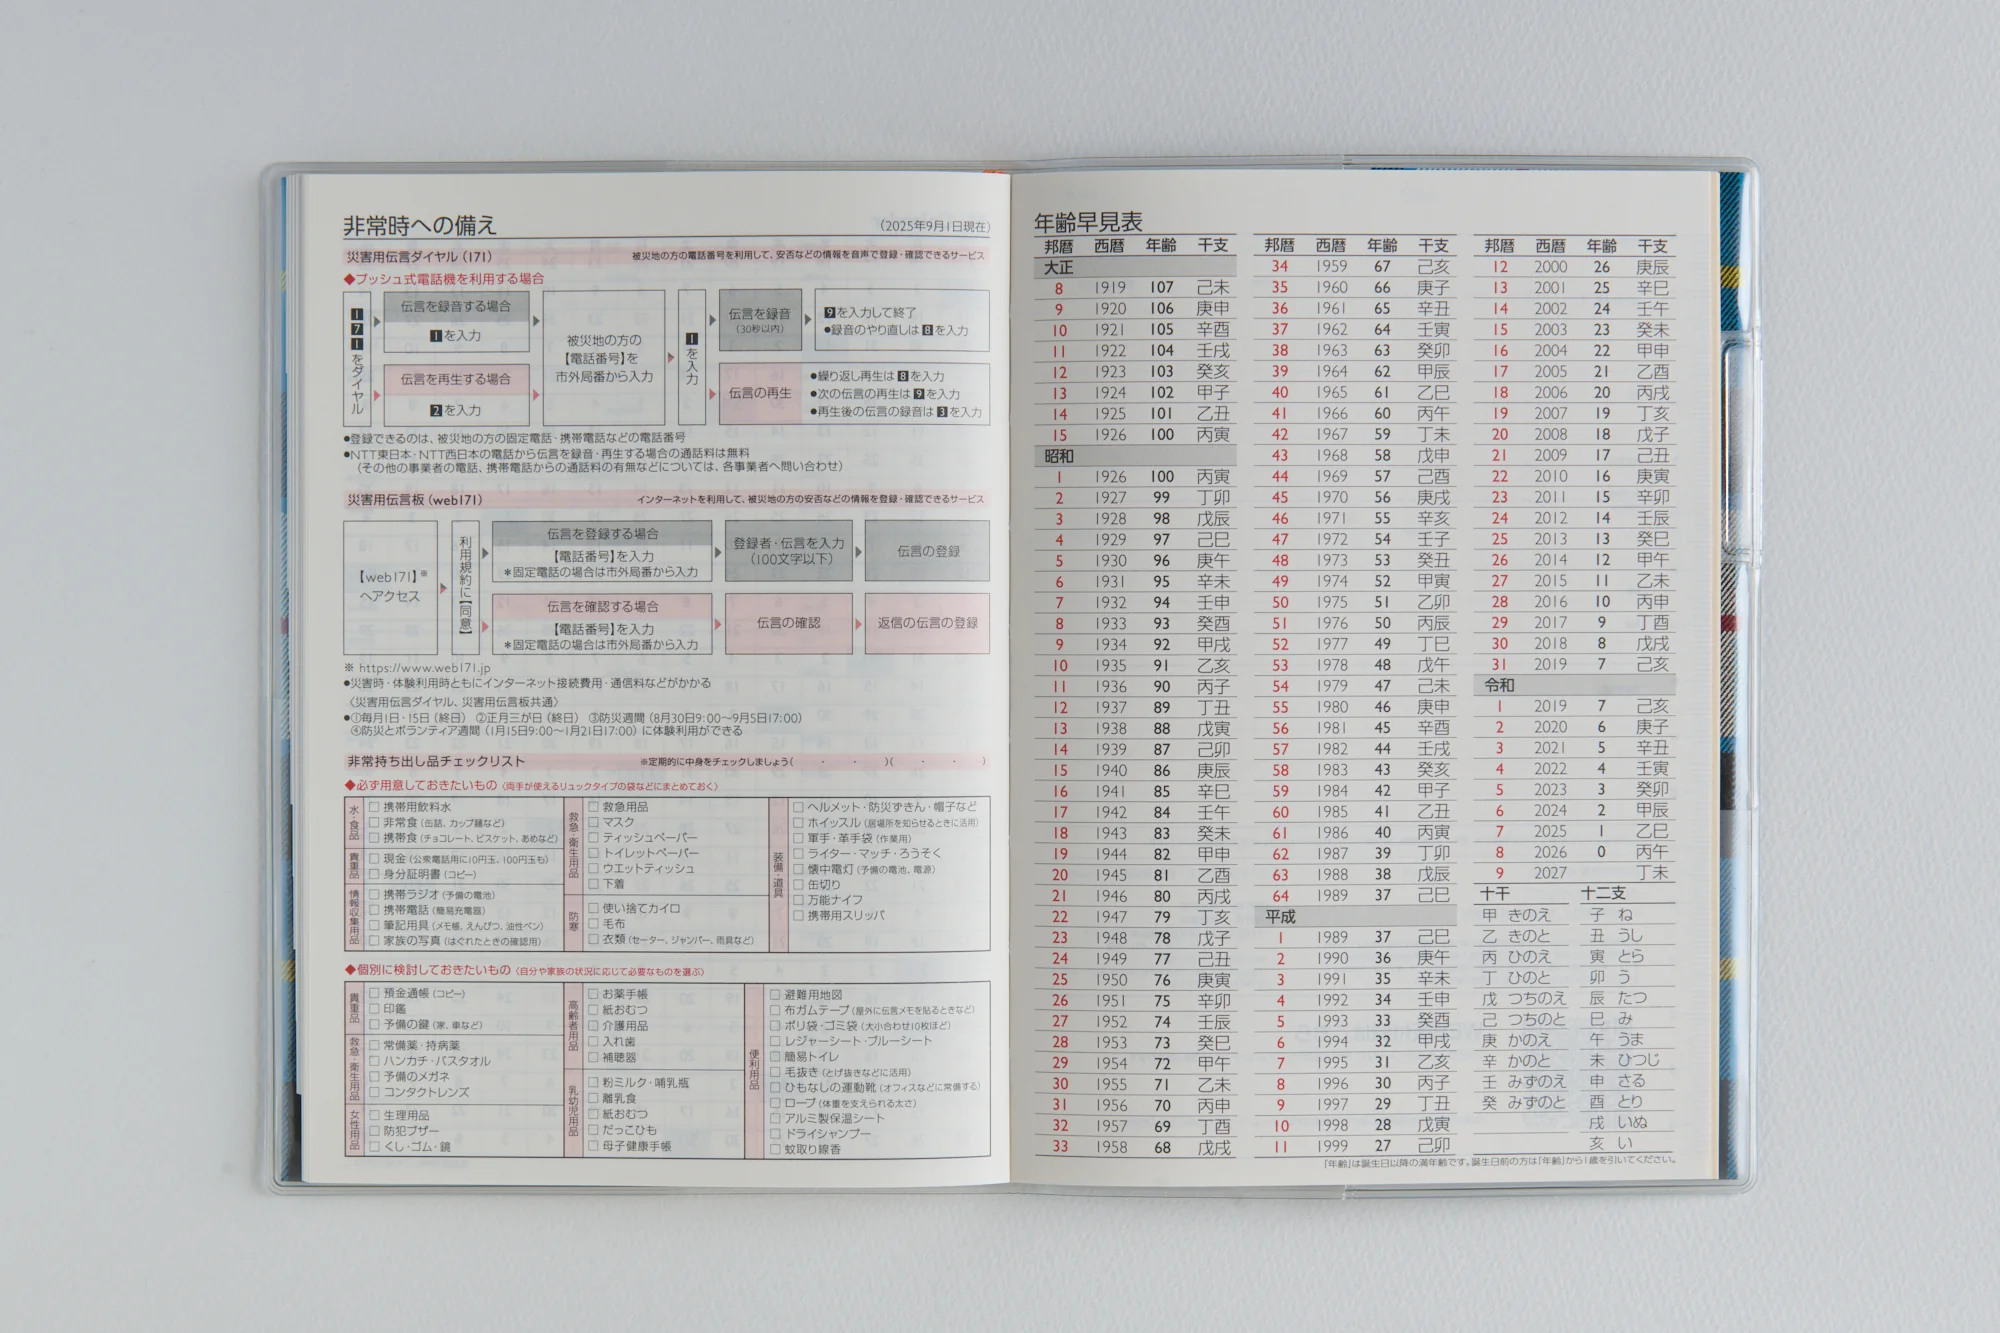 非常時への備え
(2025年9月1日現在)
災害用伝言ダイヤル(171)
被災地の方の電話番号を利用して、安否などの情報を音声で登録・確認できるサービス
◆プッシュ式電話機を利用する場合
171をダイヤル
伝言を録音する場合
1を入力
伝言を再生する場合
2を入力
被災地の方の
【電話番号】を
市外局番から入力
1を入力
伝言を録音
(30秒以内)
9を入力して終了
●録音のやり直しは8を入力
伝言の再生
●繰り返し再生は8を入力
●次の伝言の再生は9を入力
●再生後の伝言の録音は3を入力
●登録できるのは、被災地の方の固定電話・携帯電話などの電話番号
●NTT東日本・NTT西日本の電話から伝言を録音・再生する場合の通話料は無料
(その他の事業者の電話、携帯電話からの通話料の有無などについては、各事業者へ問い合わせ)
災害用伝言板(web171)
インターネットを利用して、被災地の方の安否などの情報を登録・確認できるサービス
【web171】※
へアクセス
利用規約に【同意】
伝言を登録する場合
【電話番号】を入力
*固定電話の場合は市外局番から入力
登録者・伝言を入力
(100文字以下)
伝言の登録
伝言を確認する場合
【電話番号】を入力
*固定電話の場合は市外局番から入力
伝言の確認
返信の伝言の登録
※ https://www.web171.jp
●災害時・体験利用時ともにインターネット接続費用・通信料などがかかる
〈災害用伝言ダイヤル、災害用伝言板共通〉
●①毎月1日・15日(終日) ②正月三が日(終日) ③防災週間(8月30日9:00〜9月5日17:00)
④防災とボランティア週間(1月15日9:00〜1月21日17:00)に体験利用ができる
非常持ち出し品チェックリスト
※定期的に中身をチェックしましょう( ・ ・ )( ・ ・ )
◆必ず用意しておきたいもの〈両手が使えるリュックタイプの袋などにまとめておく〉
水・食品
□携帯用飲料水
□非常食(缶詰、カップ麺など)
□携帯食(チョコレート、ビスケット、あめなど)
貴重品
□現金(公衆電話用に10円玉、100円玉も)
□身分証明書(コピー)
情報収集用品
□携帯ラジオ(予備の電池)
□携帯電話(簡易充電器)
□筆記用具(メモ帳、えんぴつ、油性ペン)
□家族の写真(はぐれたときの確認用)
救急・衛生用品
□救急用品
□マスク
□ティッシュペーパー
□トイレットペーパー
□ウエットティッシュ
□下着
防寒
□使い捨てカイロ
□毛布
□衣類(セーター、ジャンパー、雨具など)
装備・道具
□ヘルメット・防災ずきん・帽子など
□ホイッスル(居場所を知らせるときに活用)
□軍手・革手袋(作業用)
□ライター・マッチ・ろうそく
□懐中電灯(予備の電池、電源)
□缶切り
□万能ナイフ
□携帯用スリッパ
◆個別に検討しておきたいもの〈自分や家族の状況に応じて必要なものを選ぶ〉
貴重品
□預金通帳(コピー)
□印鑑
□予備の鍵(家、車など)
救急・衛生用品
□常備薬・持病薬
□ハンカチ・バスタオル
□予備のメガネ
□コンタクトレンズ
女性用品
□生理用品
□防犯ブザー
□くし・ゴム・鏡
高齢者用品
□お薬手帳
□紙おむつ
□介護用品
□入れ歯
□補聴器
乳幼児用品
□粉ミルク・哺乳瓶
□離乳食
□紙おむつ
□だっこひも
□母子健康手帳
便利用品
□避難用地図
□布ガムテープ(屋外に伝言メモを貼るときなど)
□ポリ袋・ゴミ袋(大小合わせ10枚ほど)
□レジャーシート・ブルーシート
□簡易トイレ
□毛抜き(とげ抜きなどに活用)
□ひもなしの運動靴(オフィスなどに常備する)
□ロープ(体重を支えられる太さ)
□アルミ製保温シート
□ドライシャンプー
□蚊取り線香
年齢早見表
邦暦 西暦 年齢 干支
大正
8 1919 107 己未
9 1920 106 庚申
10 1921 105 辛酉
11 1922 104 壬戌
12 1923 103 癸亥
13 1924 102 甲子
14 1925 101 乙丑
15 1926 100 丙寅
昭和
1 1926 100 丙寅
2 1927 99 丁卯
3 1928 98 戊辰
4 1929 97 己巳
5 1930 96 庚午
6 1931 95 辛未
7 1932 94 壬申
8 1933 93 癸酉
9 1934 92 甲戌
10 1935 91 乙亥
11 1936 90 丙子
12 1937 89 丁丑
13 1938 88 戊寅
14 1939 87 己卯
15 1940 86 庚辰
16 1941 85 辛巳
17 1942 84 壬午
18 1943 83 癸未
19 1944 82 甲申
20 1945 81 乙酉
21 1946 80 丙戌
22 1947 79 丁亥
23 1948 78 戊子
24 1949 77 己丑
25 1950 76 庚寅
26 1951 75 辛卯
27 1952 74 壬辰
28 1953 73 癸巳
29 1954 72 甲午
30 1955 71 乙未
31 1956 70 丙申
32 1957 69 丁酉
33 1958 68 戊戌
邦暦 西暦 年齢 干支
34 1959 67 己亥
35 1960 66 庚子
36 1961 65 辛丑
37 1962 64 壬寅
38 1963 63 癸卯
39 1964 62 甲辰
40 1965 61 乙巳
41 1966 60 丙午
42 1967 59 丁未
43 1968 58 戊申
44 1969 57 己酉
45 1970 56 庚戌
46 1971 55 辛亥
47 1972 54 壬子
48 1973 53 癸丑
49 1974 52 甲寅
50 1975 51 乙卯
51 1976 50 丙辰
52 1977 49 丁巳
53 1978 48 戊午
54 1979 47 己未
55 1980 46 庚申
56 1981 45 辛酉
57 1982 44 壬戌
58 1983 43 癸亥
59 1984 42 甲子
60 1985 41 乙丑
61 1986 40 丙寅
62 1987 39 丁卯
63 1988 38 戊辰
64 1989 37 己巳
平成
1 1989 37 己巳
2 1990 36 庚午
3 1991 35 辛未
4 1992 34 壬申
5 1993 33 癸酉
6 1994 32 甲戌
7 1995 31 乙亥
8 1996 30 丙子
9 1997 29 丁丑
10 1998 28 戊寅
11 1999 27 己卯
邦暦 西暦 年齢 干支
12 2000 26 庚辰
13 2001 25 辛巳
14 2002 24 壬午
15 2003 23 癸未
16 2004 22 甲申
17 2005 21 乙酉
18 2006 20 丙戌
19 2007 19 丁亥
20 2008 18 戊子
21 2009 17 己丑
22 2010 16 庚寅
23 2011 15 辛卯
24 2012 14 壬辰
25 2013 13 癸巳
26 2014 12 甲午
27 2015 11 乙未
28 2016 10 丙申
29 2017 9 丁酉
30 2018 8 戊戌
31 2019 7 己亥
令和
1 2019 7 己亥
2 2020 6 庚子
3 2021 5 辛丑
4 2022 4 壬寅
5 2023 3 癸卯
6 2024 2 甲辰
7 2025 1 乙巳
8 2026 0 丙午
9 2027 丁未
十干 十二支
甲 きのえ 子 ね
乙 きのと 丑 うし
丙 ひのえ 寅 とら
丁 ひのと 卯 う
戊 つちのえ 辰 たつ
己 つちのと 巳 み
庚 かのえ 午 うま
辛 かのと 未 ひつじ
壬 みずのえ 申 さる
癸 みずのと 酉 とり
戌 いぬ
亥 い
「年齢」は誕生日以降の満年齢です。誕生日前の方は「年齢」から1歳を引いてください。